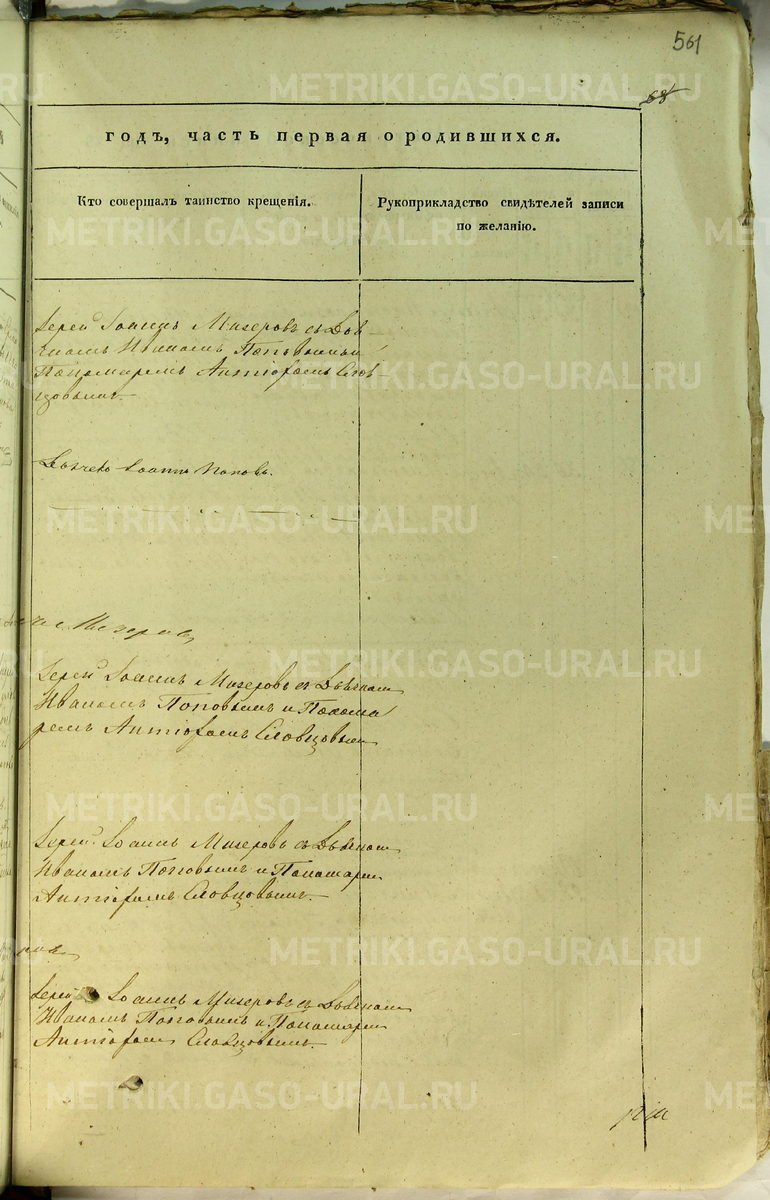 561
68
годъ, часть первая о родившихся.
Кто совершалъ таинство крещенія.
Рукоприкладство свидѣтелей записи
по желанію.
Іерей Іоаннъ Мизеровъ съ Дья-
Иваномъ Поповымъ и
Пономаремъ Антіофомъ Слов-
цовымъ.
Іоаннъ Поповъ.
Мизеровъ
Іерей Іоаннъ Мизеровъ съ
Иваномъ Поповымъ и Понома
ремъ Антіофомъ Словцовымъ
Іерей Іоаннъ Мизеровъ съ
Иваномъ Поповымъ и Пономаремъ
Антіофомъ Словцовымъ.
Іерей Іоаннъ Мизеровъ съ
Иваномъ Поповымъ и Пономаремъ
Антіофомъ Словцовымъ.
METRIKI.GASO-URAL.RU